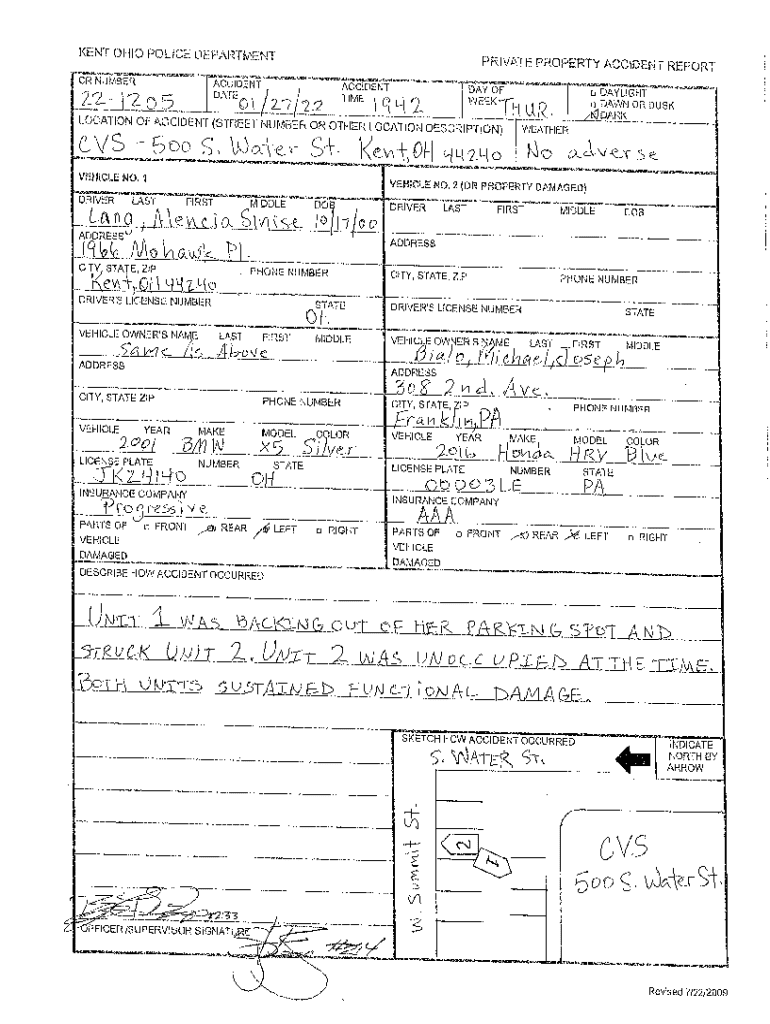 KENT OHIO POLICE DEPARTMENT
PRIVATE PROPERTY ACCIDENT REPORT
CR NUMBER ACCIDENT DATE ACCIDENT TIME DAY OF WEEK □ DAYLIGHT
22-1205 01/27/22 1942 THUR. □ DAWN OR DUSK
☒ DARK
LOCATION OF ACCIDENT (STREET NUMBER OR OTHER LOCATION DESCRIPTION) WEATHER
CVS - 500 S. Water St. Kent, OH 44240 No adverse
VEHICLE NO. 1 VEHICLE NO. 2 (OR PROPERTY DAMAGED)
DRIVER LAST FIRST MIDDLE DOB DRIVER LAST FIRST MIDDLE DOB
Alencia 10/17/00
ADDRESS ADDRESS
1966 Mohawk Pl.
CITY, STATE, ZIP PHONE NUMBER CITY, STATE, ZIP PHONE NUMBER
Kent, OH 44240
DRIVER'S LICENSE NUMBER STATE DRIVER'S LICENSE NUMBER STATE
OH
VEHICLE OWNER'S NAME LAST FIRST MIDDLE VEHICLE OWNER'S NAME LAST FIRST MIDDLE
Same As Above Bialo, Michael, Joseph
ADDRESS ADDRESS
308 2nd. Ave.
CITY, STATE ZIP PHONE NUMBER CITY, STATE, ZIP PHONE NUMBER
Franklin, PA
VEHICLE YEAR MAKE MODEL COLOR VEHICLE YEAR MAKE MODEL COLOR
2001 BMW X5 Silver 2016 Honda HRV Blue
LICENSE PLATE NUMBER STATE LICENSE PLATE NUMBER STATE
JKZ4140 OH 00003LE PA
INSURANCE COMPANY INSURANCE COMPANY
Progressive AAA
PARTS OF VEHICLE DAMAGED □ FRONT ☒ REAR ☒ LEFT □ RIGHT PARTS OF VEHICLE DAMAGED □ FRONT ☒ REAR ☒ LEFT □ RIGHT
DESCRIBE HOW ACCIDENT OCCURRED
UNIT 1 WAS BACKING OUT OF HER PARKING SPOT AND
STRUCK UNIT 2. UNIT 2 WAS UNOCCUPIED AT THE TIME.
BOTH UNITS SUSTAINED FUNCTIONAL DAMAGE.
SKETCH HOW ACCIDENT OCCURRED INDICATE NORTH BY ARROW
S. WATER ST.
W. Summit St.
2
1
CVS
500 S. Water St.
#233
OFFICER/SUPERVISOR SIGNATURE
Revised 7/22/2009